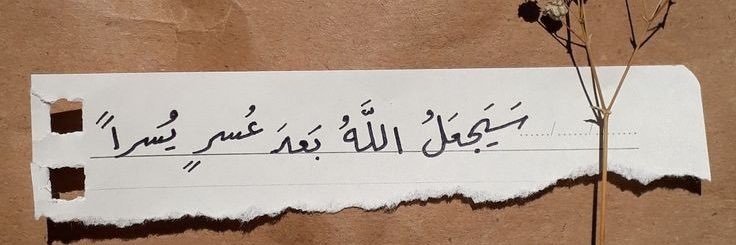 سَيَجعَلُ اللَّهُ بَعدَ عُسرٍ يُسراً